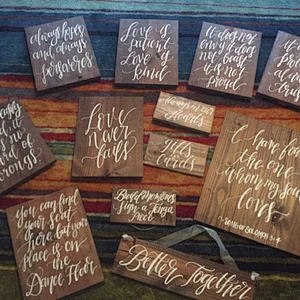 always hopes
and always
perseveres
Love is
patient
Love is
kind
it does not
envy it does
not boast
it is not
proud
always
trus
keeps
no
of
wrongs
Love
never
fails
cards
gifts &
cards
I have found
the one
whom my soul
loves
SONG OF SOLOMON 3:4
You can find
your seat
there but your
place is on
the
Dance Floor
Build memories
Sign a Jenga
piece
Better Together